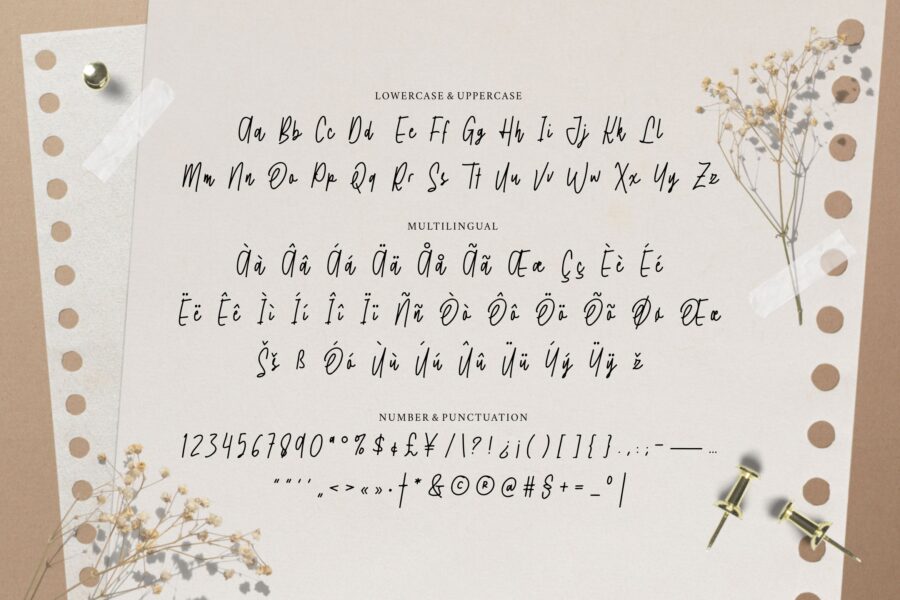 LOWERCASE & UPPERCASE
Aa Bb Cc Dd Ee Ff Gg Hh Ii Jj Kk Ll
Mm Nn Oo Pp Qq Rr Ss Tt Uu Vv Ww Xx Yy Zz
MULTILINGUAL
Àà Ââ Áá Ää Åå Ãã Ææ Çç Èè Éé
Ëë Êê Ìì Íí Îî Ïï Ññ Òò Ôô Öö Õõ Øø Œœ
Šš ß Óó Ùù Úú Ûû Üü Ýý Ÿÿ ž
NUMBER & PUNCTUATION
1234567890 ª º % $ ¢ £ ¥ / \ ? ! ¿ ¡ ( ) [ ] { } . , : ; - — …
“ ” ‘ ’ „ < > « » · † * & © ® @ # § + = _ ° |